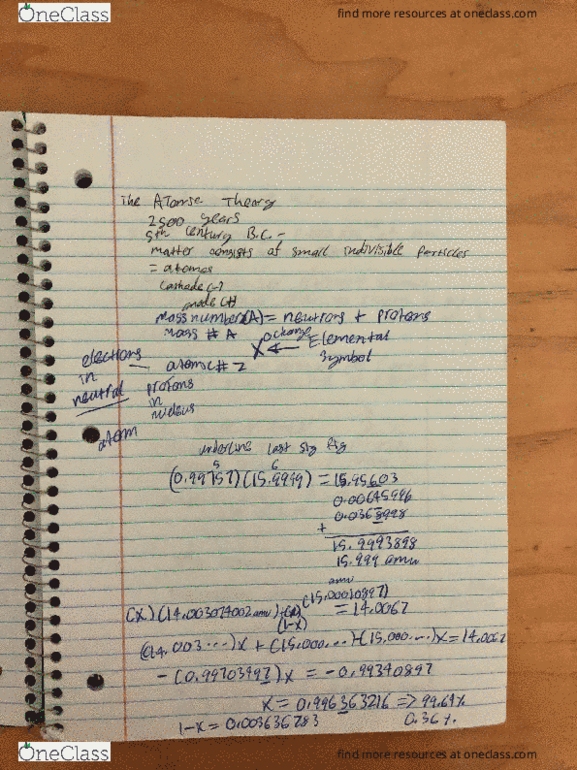 OneClass
find more resources at oneclass.com
The Atomic Theory
2500 years
5th century B.C. -
matter consists of small indivisible particles
= atomos
cathode (-)
anode (+)
mass number (A) = neutrons + protons
mass # A
charge
X ← Elemental
symbol
electrons
in
neutral
atom
— atomic # Z
protons
in
nucleus
underline last sig fig
5 6
(0.99757)(15.9949) = 15.95603
0.00645996
0.0368998
+
15.9993898
15.999 amu
(x)(14.003074002 amu) + (1-x)(15.00010897) amu = 14.0067
(14.003...)x + (15.000...) - (15.000...)x = 14.0067
- (0.99703497)x = -0.99340897
x = 0.996363216 => 99.64%
1-x = 0.003636783 0.36%
OneClass
find more resources at oneclass.com